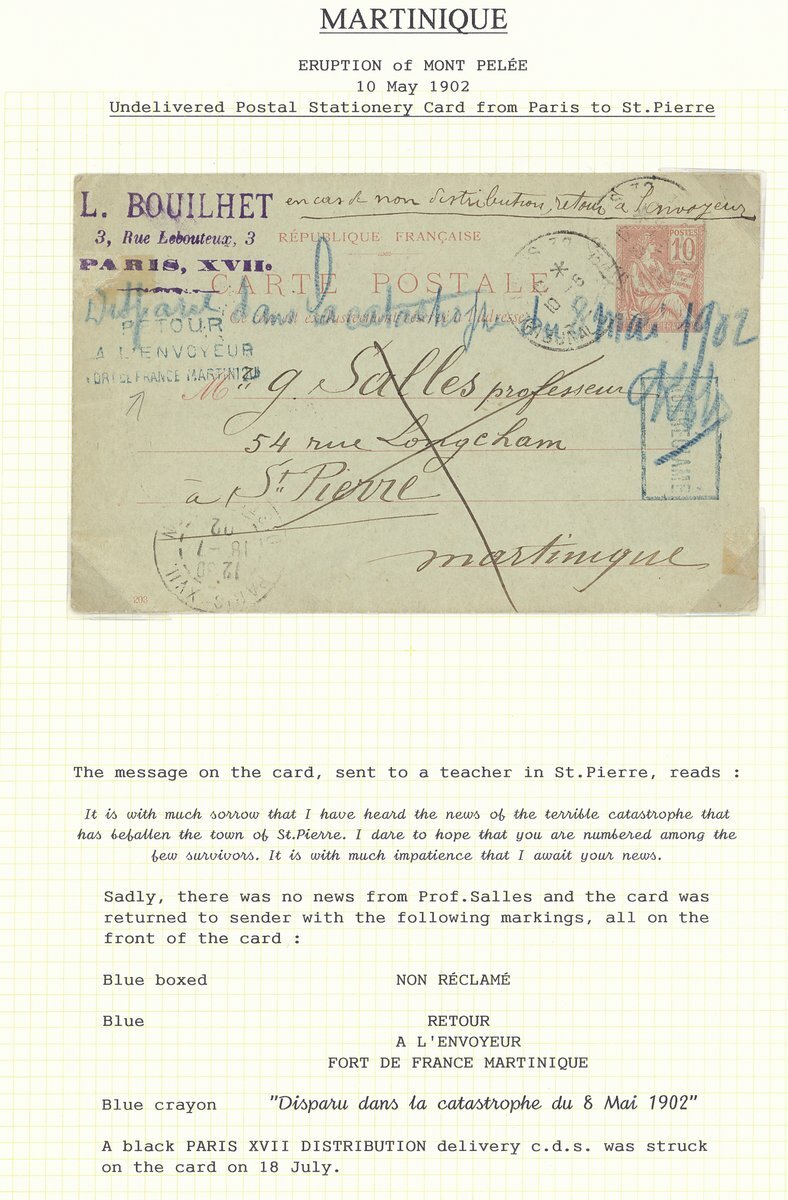 MARTINIQUE
ERUPTION of MONT PELÉE
10 May 1902
Undelivered Postal Stationery Card from Paris to St.Pierre
L. BOUILHET
3, Rue Lebouteux, 3
PARIS, XVII.
en cas de non distribution, retour à l'envoyeur
RÉPUBLIQUE FRANÇAISE
CARTE POSTALE
Ce côté est exclusivement réservé à l'adresse
POSTES
10
Disparu dans la catastrophe du 8 mai 1902
RETOUR
A L'ENVOYEUR
FORT DE FRANCE MARTINIQUE
M r g. Salles professeur
54 rue Longcham
à St. Pierre
martinique
NON RÉCLAMÉ
12 30
18 - 7
02
PARIS XVII
203
The message on the card, sent to a teacher in St.Pierre, reads :
It is with much sorrow that I have heard the news of the terrible catastrophe that
has befallen the town of St.Pierre. I dare to hope that you are numbered among the
few survivors. It is with much impatience that I await your news.
Sadly, there was no news from Prof.Salles and the card was
returned to sender with the following markings, all on the
front of the card :
Blue boxed NON RÉCLAMÉ
Blue RETOUR
A L'ENVOYEUR
FORT DE FRANCE MARTINIQUE
Blue crayon "Disparu dans la catastrophe du 8 Mai 1902"
A black PARIS XVII DISTRIBUTION delivery c.d.s. was struck
on the card on 18 July.